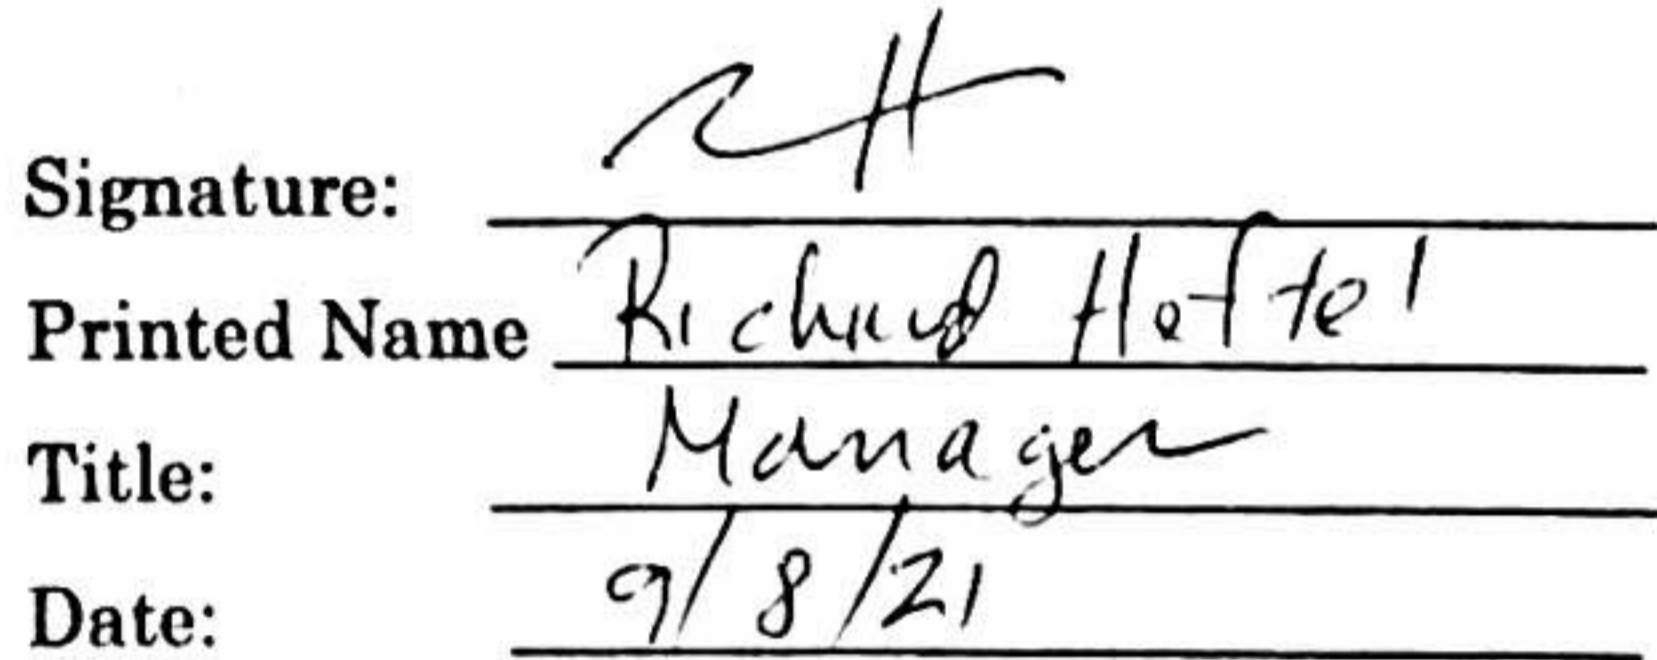 Signature:
Printed Name Richard Heftel
Title: Manager
Date: 9/8/21